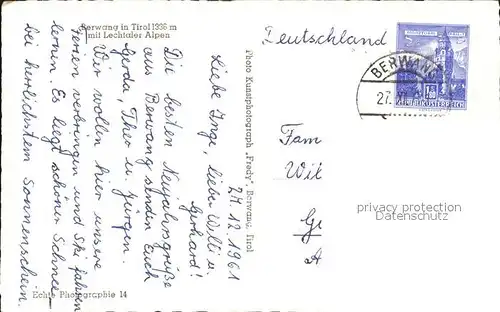 Berwang in Tirol 1336 m
mit Lechtaler Alpen
27.12.1961
Liebe Inge, liebe Willi u.
Gerhard!
Die besten Neujahrsgrüße
aus Berwang senden Euch
Gerda, Theo u. Jürgen.
Wir wollen hier unsere
Ferien verbringen und Ski fahren
lernen. Es liegt schöner Schnee
bei herrlichstem Sonnenschein.
Echte Photographie 14
Photo Kunstphotograph "Fredy", Berwang, Tirol
Deutschland
BERWANG
27.
REPUBLIK ÖSTERREICH
Fam
Wil
privacy protection
Datenschutz